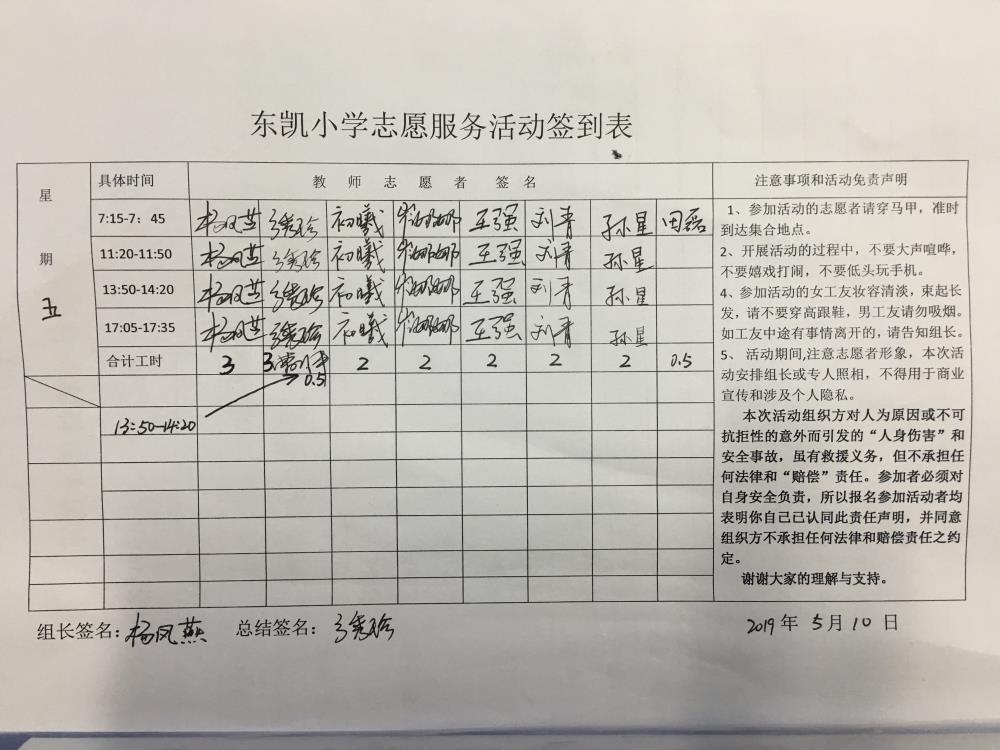 东凯小学志愿服务活动签到表
星期五
具体时间 教师志愿者签名 注意事项和活动免责声明
7:15-7:45 杨凤燕 秀珍 初曦 娜娜 王强 刘青 孙星 田磊
11:20-11:50 杨凤燕 秀珍 初曦 娜娜 王强 刘青 孙星
13:50-14:20 杨凤燕 秀珍 初曦 娜娜 王强 刘青 孙星
17:05-17:35 杨凤燕 秀珍 初曦 娜娜 王强 刘青 孙星
合计工时 3 3 2 2 2 2 2 0.5
0.5
13:50-14:20
1、参加活动的志愿者请穿马甲，准时
到达集合地点。
2、开展活动的过程中，不要大声喧哗，
不要嬉戏打闹，不要低头玩手机。
4、参加活动的女工友妆容清淡，束起长
发，请不要穿高跟鞋，男工友请勿吸烟。
如工友中途有事情离开的，请告知组长。
5、 活动期间,注意志愿者形象，本次活
动安排组长或专人照相，不得用于商业
宣传和涉及个人隐私。
本次活动组织方对人为原因或不可
抗拒性的意外而引发的“人身伤害”和
安全事故，虽有救援义务，但不承担任
何法律和“赔偿”责任。参加者必须对
自身安全负责，所以报名参加活动者均
表明你自己已认同此责任声明，并同意
组织方不承担任何法律和赔偿责任之约
定。
谢谢大家的理解与支持。
组长签名：杨凤燕 总结签名： 秀珍 2019年 5月10日